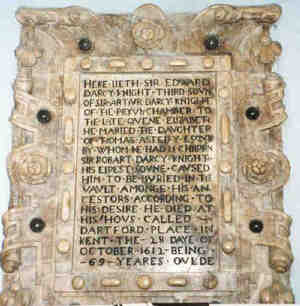 HERE LIETH SIR EDWARD
DARCY KNIGHT THIRD SOVN
OF SIR ARTHVR DARCY KNIGHT
OF THE PRYVY CHAMBER TO
THE LATE QVENE ELIZABETH
HE MARIED THE DAUGHTER
OF TOMAS ASTELY ESQVIR
BY WHOM HE HAD CHILDREN
SIR ROBART DARCY KNIGHT
HIS ELDEST SONNE CAVSED
HIM TO BE BURIED IN THE
VAVLT AMONGE HIS AN
CESTORS ACCORDING TO
HIS DESIRE HE DIED AT
HIS HOVS CALLED
DARTFORD PLACE IN
KENT THE 28 DAYE OF
OCTOBER 1612 BEING
69 YEARES OVLDE